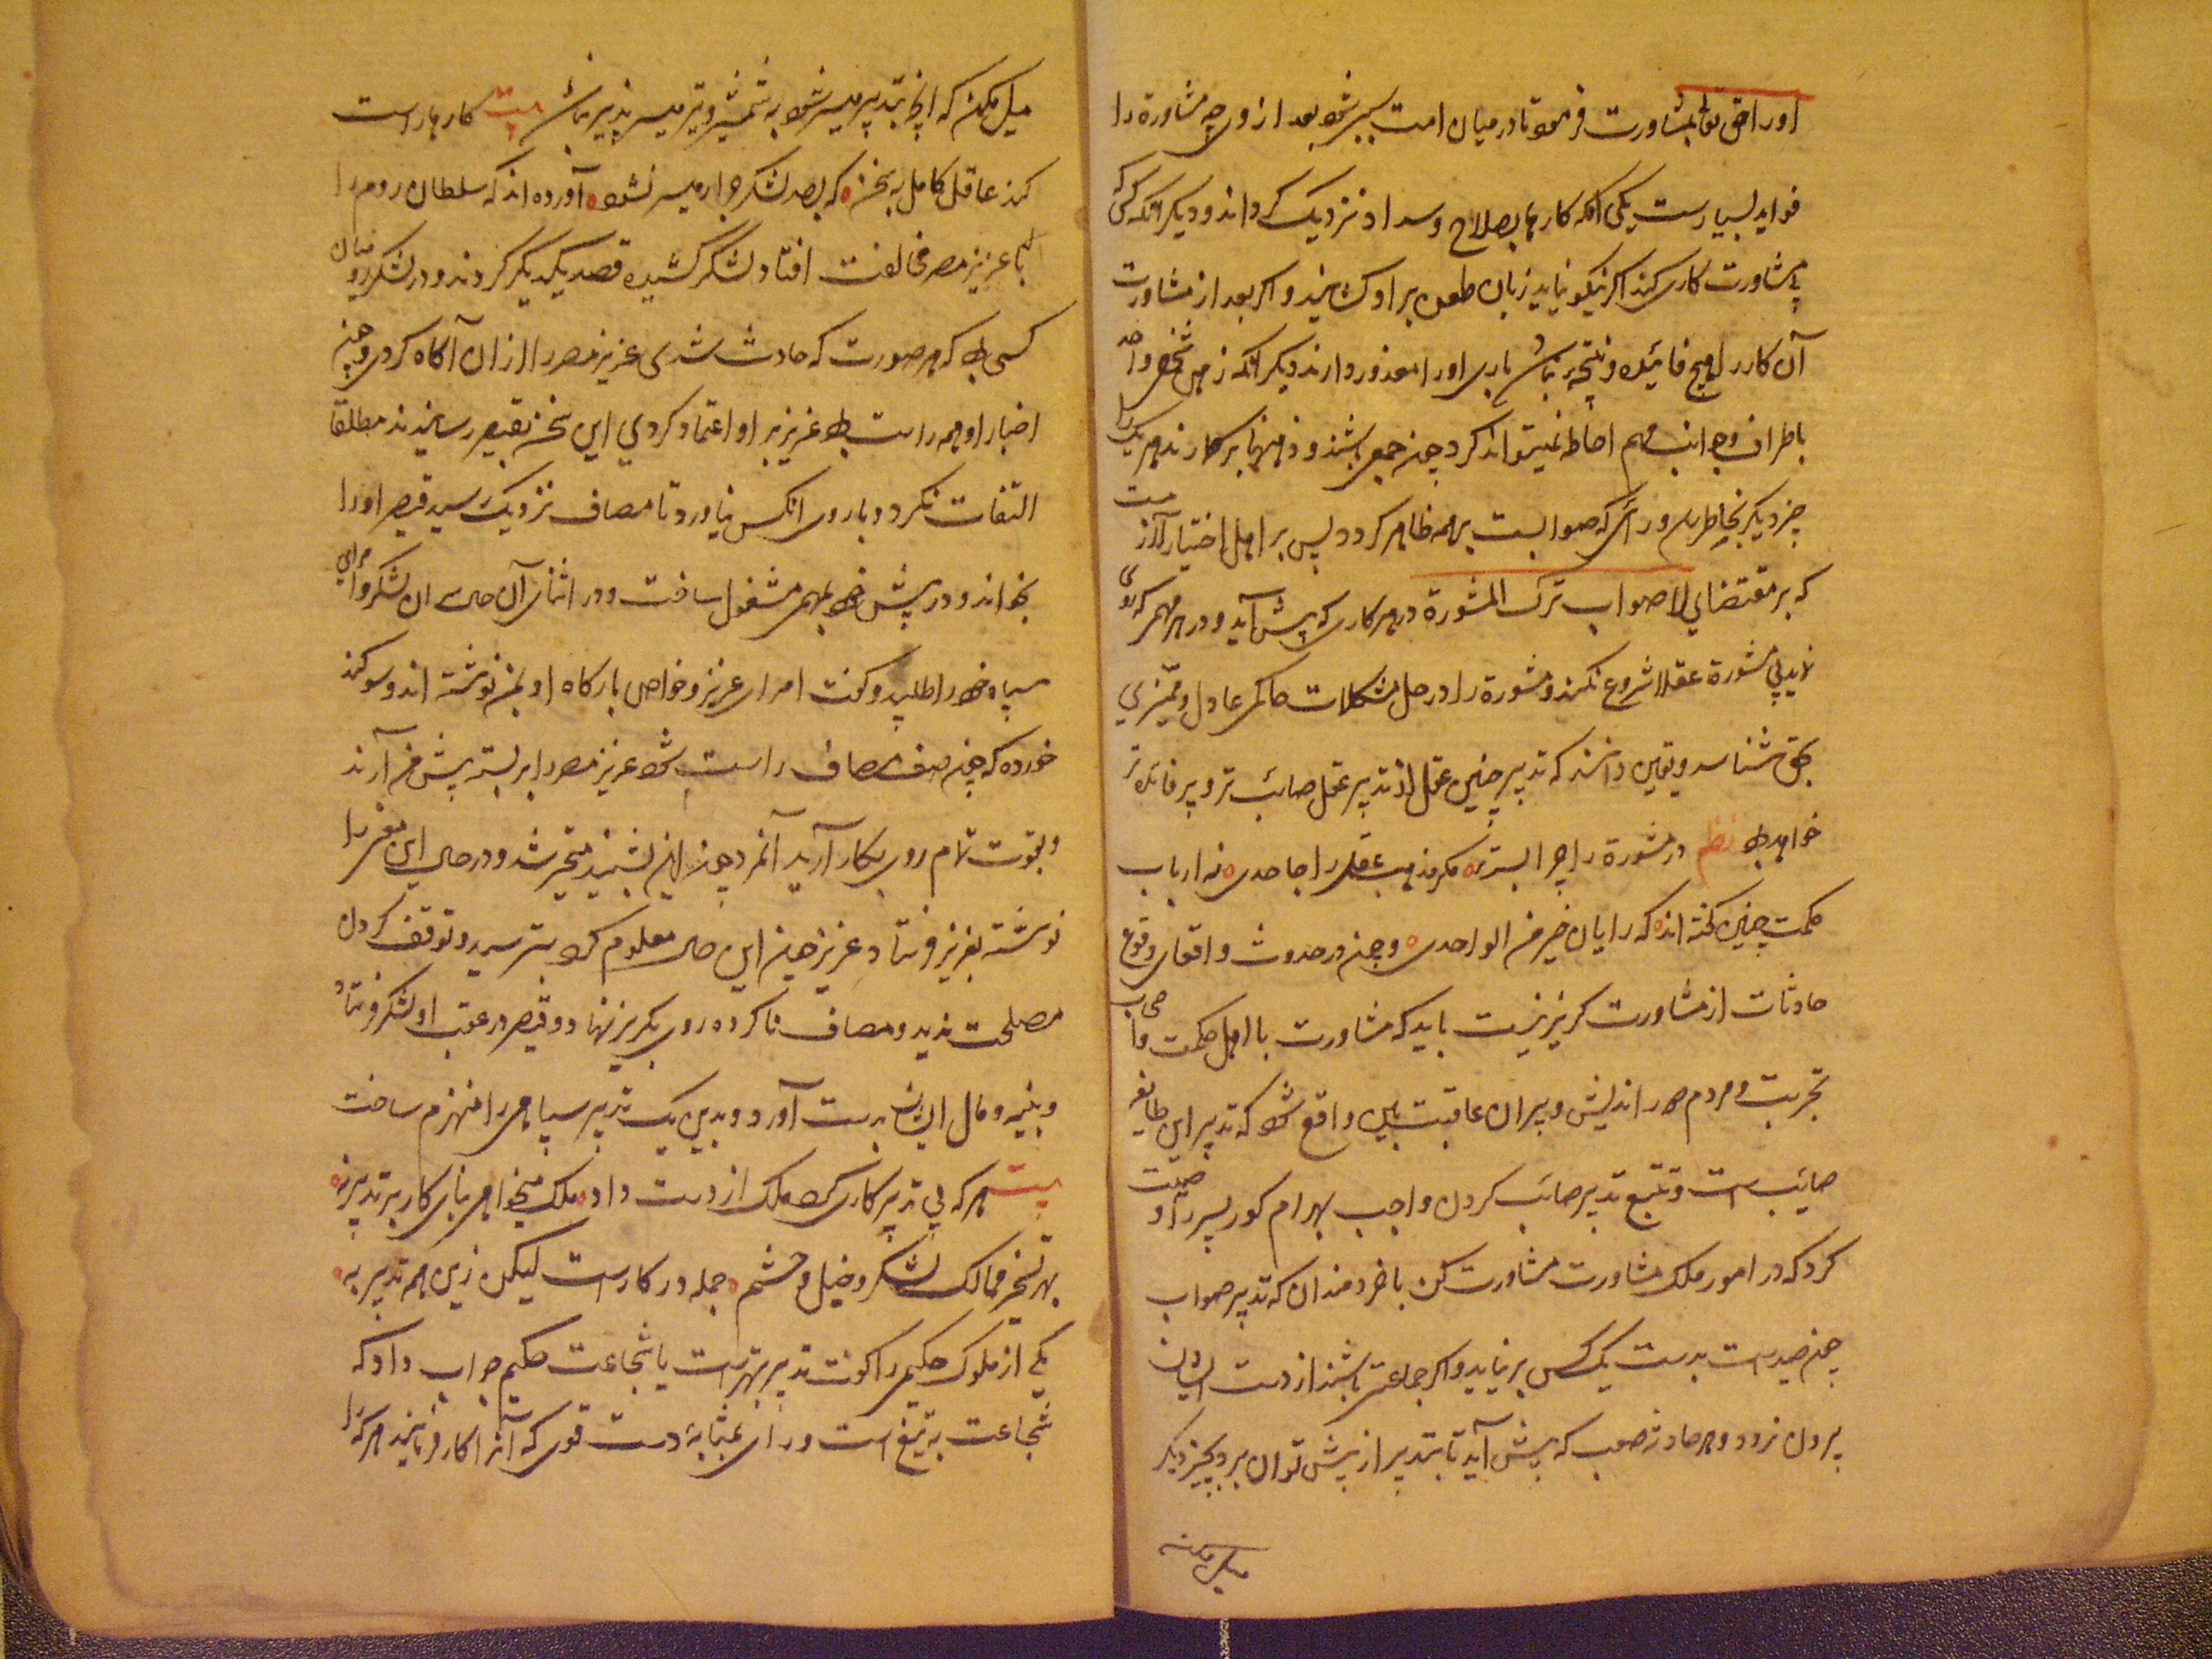 او را حق تعالی بمشاورت فرمود تا در میان امت سیر شود بعد ازو هر چه مشاورة را
فواید بسیارست یکی آنکه کارها بصلاح و سداد نزدیک گرداند و دیگر آنکه کسی که
بی مشاورت کاری کند اگر نیکو نیاید زبان طعن بر او کشایند و اگر بعد از مشاورت
آن کار را هیچ فائده و نتیجه نباشد باری او را معذور دارند دیگر آنکه ذهن شخص واحد
باطراف و جوانب مهم احاطه نمیتواند کرد چون جمعی باشند و ذهنها بر کارند هر یک را
چیز دیگر بخاطر رسد و رائی که صوابست بر همه ظاهر گردد پس بر اهل اختیار لازمست
که بر مقتضای لا صواب ترک المشورة در هر کاری که پیش آید و در هر مهمی که روی
نماید بی مشورة عقلا شروع نکنند و مشورة را در حل مشکلات حاکمی عادل و ممیزی
بحق شناسد و یقین دانند که تدبیر چنین عقل از تدبیر عقل صائب تر و پر فائده تر
خواهد بود نظم در مشورة را چرا بستری مگر مذهب عقل را جاحدی نه ارباب
حکمت چنین گفته اند که رایان خیر من الواحدی و چون در حدوث واقعات و وقوع
حادثات از مشاورت گریز نیست باید که مشاورت با اهل حکمت و اصحاب
تجربت و مردم دور اندیش و پیران عاقبت بین واقع شود که تدبیر این طایفه
صائب است و تتبع تدبیر صائب کردن واجب بهرام گور پسر را وصیت
کرد که در امور ملک مشاورت مشاورت کن با خردمندان که تدبیر صواب
چون صیدست بدست یک کس بر نیاید و اگر جماعتی باشند از دست ایشان
بیرون نرود و هر حادثه صعب که پیش آید تا بتدبیر از پیش توان برد بچیز دیگر
میل مکن
میل مکن که آنچه بتدبیر میسر شود به شمشیر و تیر میسر پذیر نباشد بیت کارها راست
کند عاقل کامل به سخن که بصد لشکر جرار میسر نشود آورده اند که سلطان روم را
با عزیز مصر مخالفت افتاد لشکر کشیده قصد یکدیگر کردند و در لشکر رومیان
کسی بود که هر صورت که حادث شدی عزیز مصر را از آن آگاه کردی و چون
اخبار او همه راست بود عزیز بر او اعتماد کردی این سخن بقیصر رسانیدند مطلقا
التفات نکرد و با روی آنکس نیاورد تا مصاف نزدیک رسید قیصر او را
بخواند و در پیش خود بمهمی مشغول ساخت و در اثنای آن حال سران لشکر و امرای
سپاه خود را طلبید و گفت امرای عزیز و خواص بارگاه او بمن نوشته اند و سوگند
خورده که چون صف مصاف راست شود عزیز مصر را بر بسته پیش من آرند
و بقوت تمام روی بکار آرید آنمرد چون این بشنید متحیر شد و در حال این معنی را
نوشته بعزیز فرستاد عزیز چون این حال معلوم کرد بترسید و توقف کردن
مصلحت ندید و مصاف ناکرده روی بگریز نهاد و قیصر در عقب او لشکر فرستاد
و بنه و مال ایشان بدست آورد و بدین یک تدبیر سپاهی را منهزم ساخت
بیت هر که بی تدبیر کاری کرد ملک از دست داد ملک میخواهی بنای کار بر تدبیر نه
بهر تسخیر ممالک لشکر و خیل و حشم جمله در کارست لیکن زین همه تدبیر به
یکی از ملوک حکیمی را گفت تدبیر بهترست یا شجاعت حکیم جواب داد که
شجاعت به تیغ است و رای بمثابه دست قوی که آنرا کار فرمایند هر که را